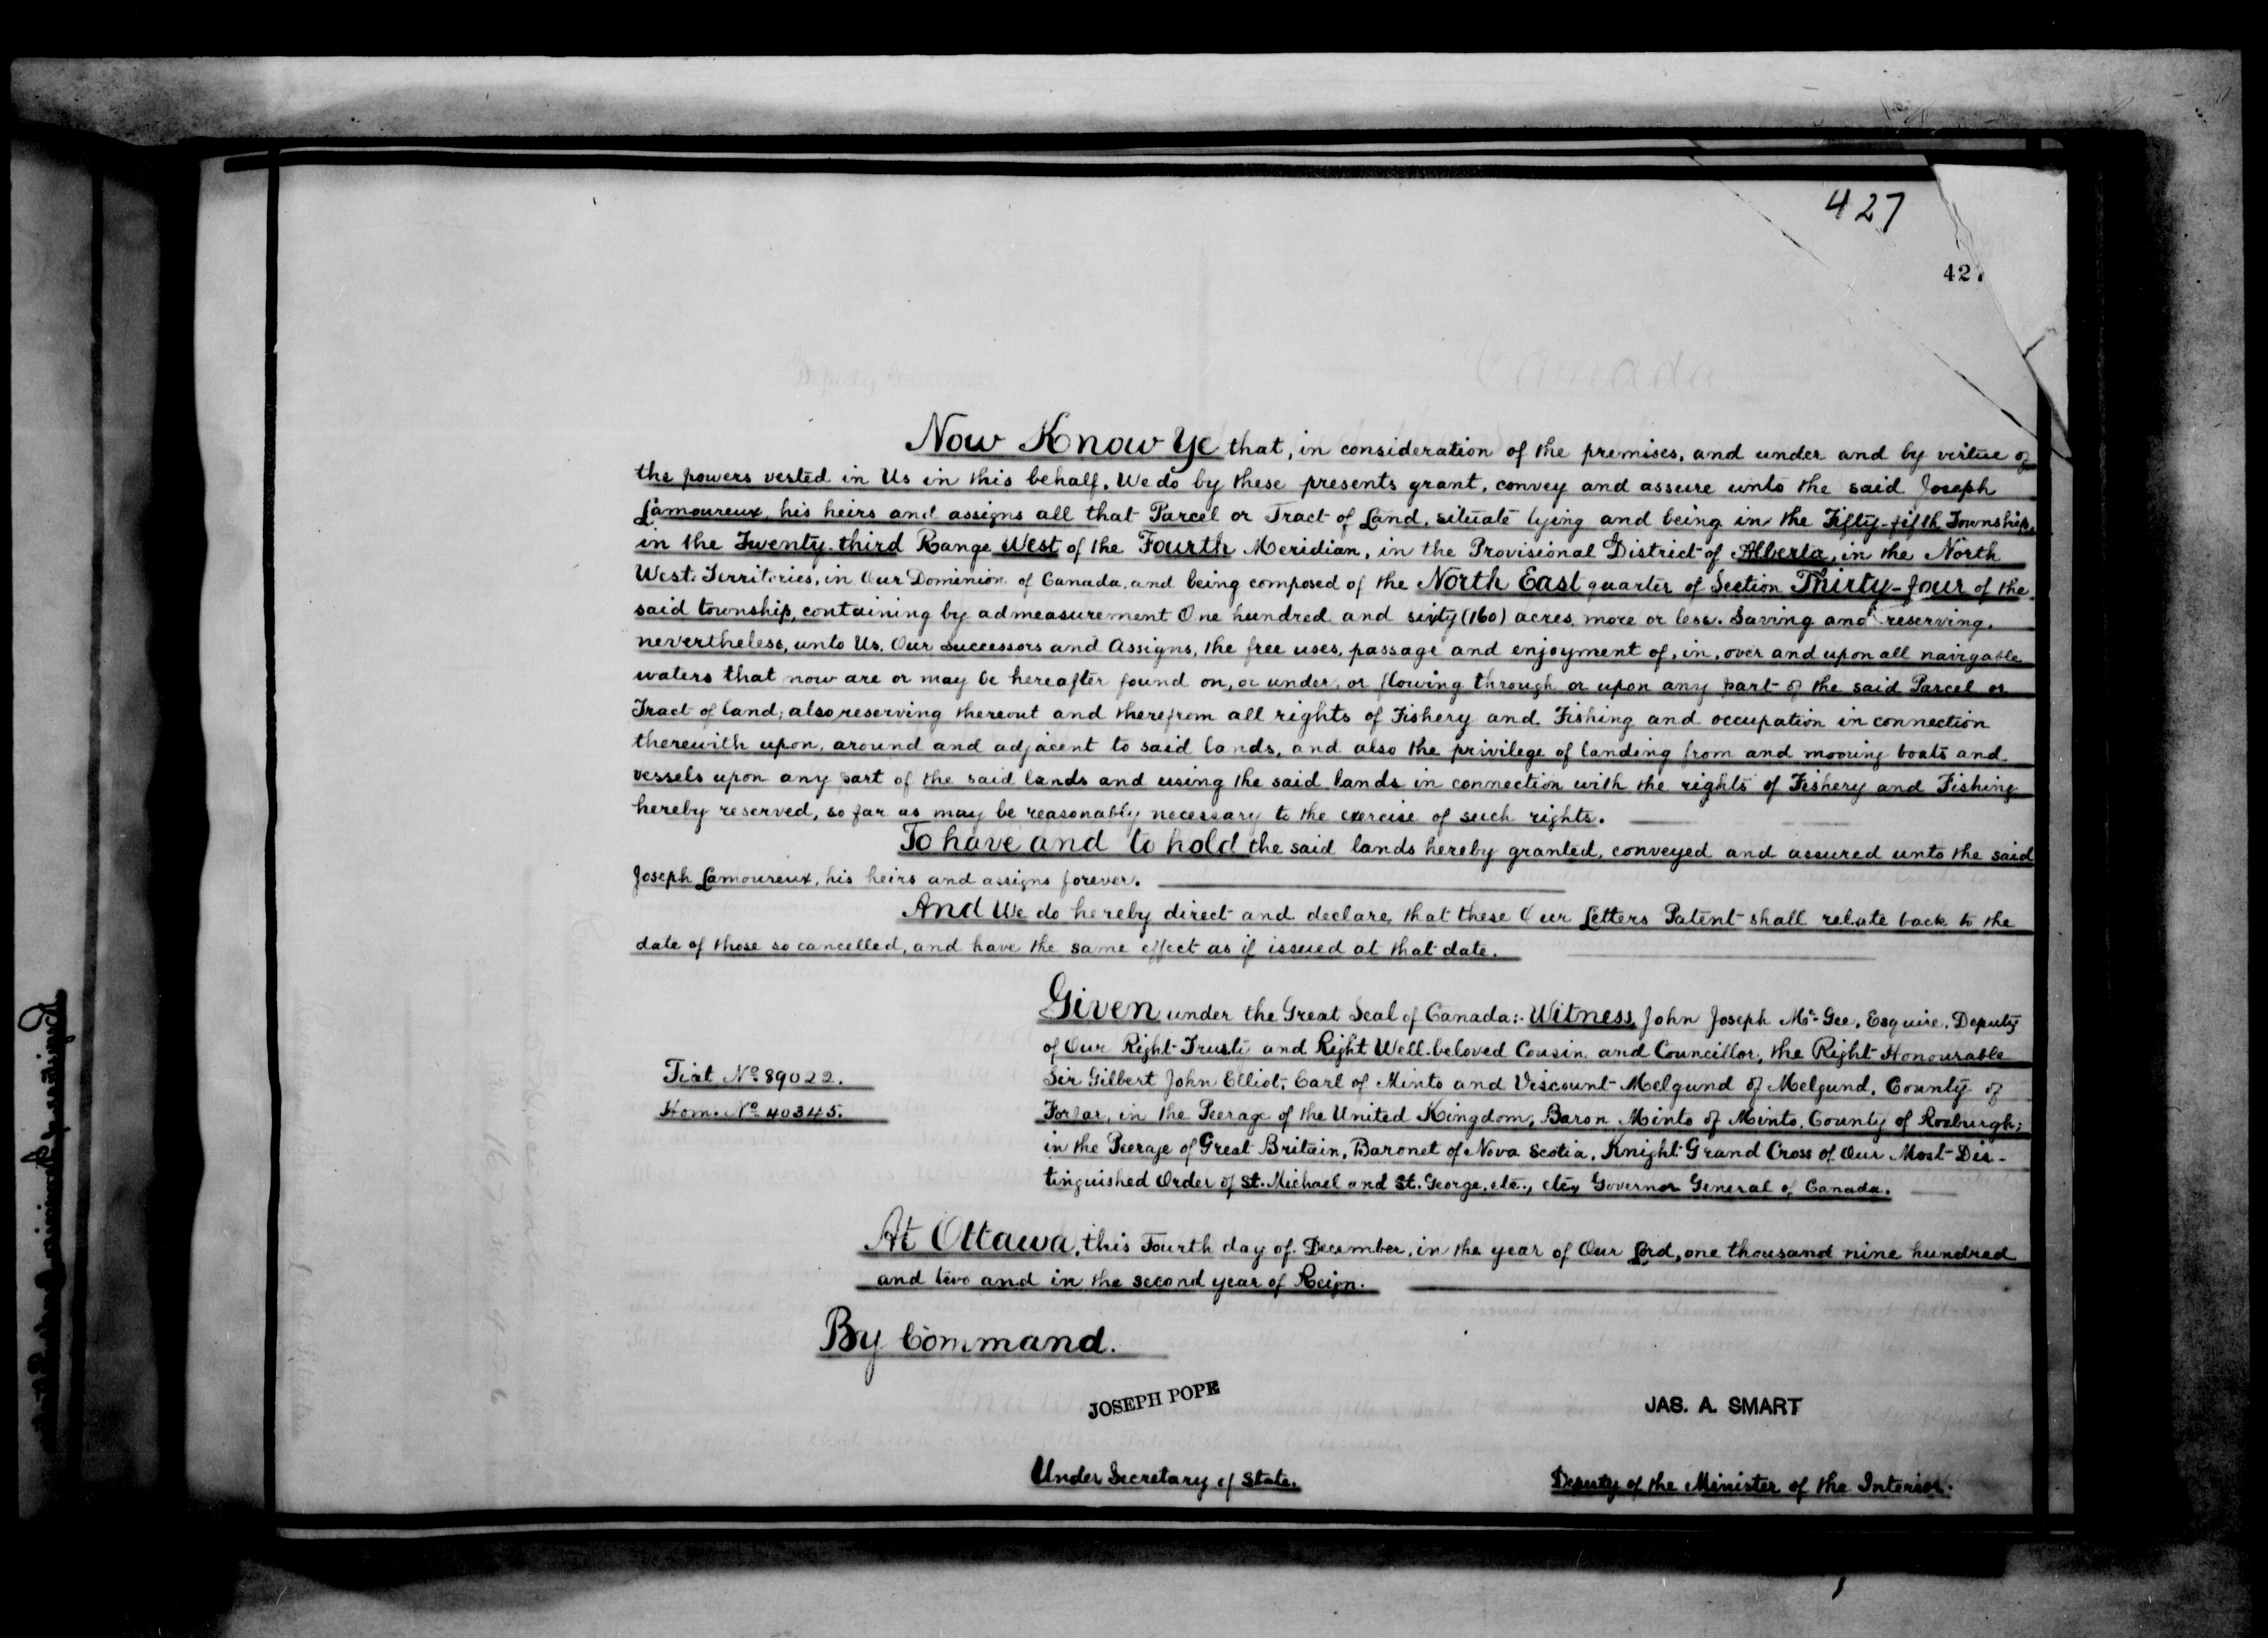 427
42
Now Know Ye that, in consideration of the premises, and under and by virtue of
the powers vested in Us in this behalf, We do by these presents grant, convey and assure unto the said Joseph
Lamoureux, his heirs and assigns all that Parcel or Tract of Land, situate lying and being in the Fifty-fifth Township,
in the Twenty-third Range West of the Fourth Meridian, in the Provisional District of Alberta, in the North
West Territories, in Our Dominion of Canada, and being composed of the North East quarter of Section Thirty-four of the
said township, containing by admeasurement One hundred and sixty (160) acres, more or less. Saving and reserving,
nevertheless, unto Us, Our Successors and Assigns, the free uses, passage and enjoyment of, in, over and upon all navigable
waters that now are or may be hereafter found on, or under, or flowing through or upon any part of the said Parcel or
Tract of land; also reserving thereout and therefrom all rights of Fishery and Fishing and occupation in connection
therewith upon, around and adjacent to said lands, and also the privilege of landing from and mooring boats and
vessels upon any part of the said lands and using the said lands in connection with the rights of Fishery and Fishing
hereby reserved, so far as may be reasonably necessary to the exercise of such rights.
To have and to hold the said lands hereby granted, conveyed and assured unto the said
Joseph Lamoureux, his heirs and assigns forever.
And We do hereby direct and declare, that these Our Letters Patent shall relate back to the
date of those so cancelled, and have the same effect as if issued at that date.
Given under the Great Seal of Canada:- Witness, John Joseph McGee, Esquire, Deputy
of Our Right Trusty and Right Well-beloved Cousin and Councillor, the Right Honourable
Fiat No. 89022.
Sir Gilbert John Elliot, Earl of Minto and Viscount Melgund of Melgund, County of
Hom. No. 40345.
Forfar, in the Peerage of the United Kingdom, Baron Minto of Minto, County of Roxburgh,
in the Peerage of Great Britain, Baronet of Nova Scotia, Knight Grand Cross of Our Most Dis-
tinguished Order of St. Michael and St. George, etc., etc., Governor General of Canada.
At Ottawa, this Fourth day of December, in the year of Our Lord, one thousand nine hundred
and two and in the second year of Reign.
By Command.
JOSEPH POPE
JAS. A. SMART
Under Secretary of State.
Deputy of the Minister of the Interior.